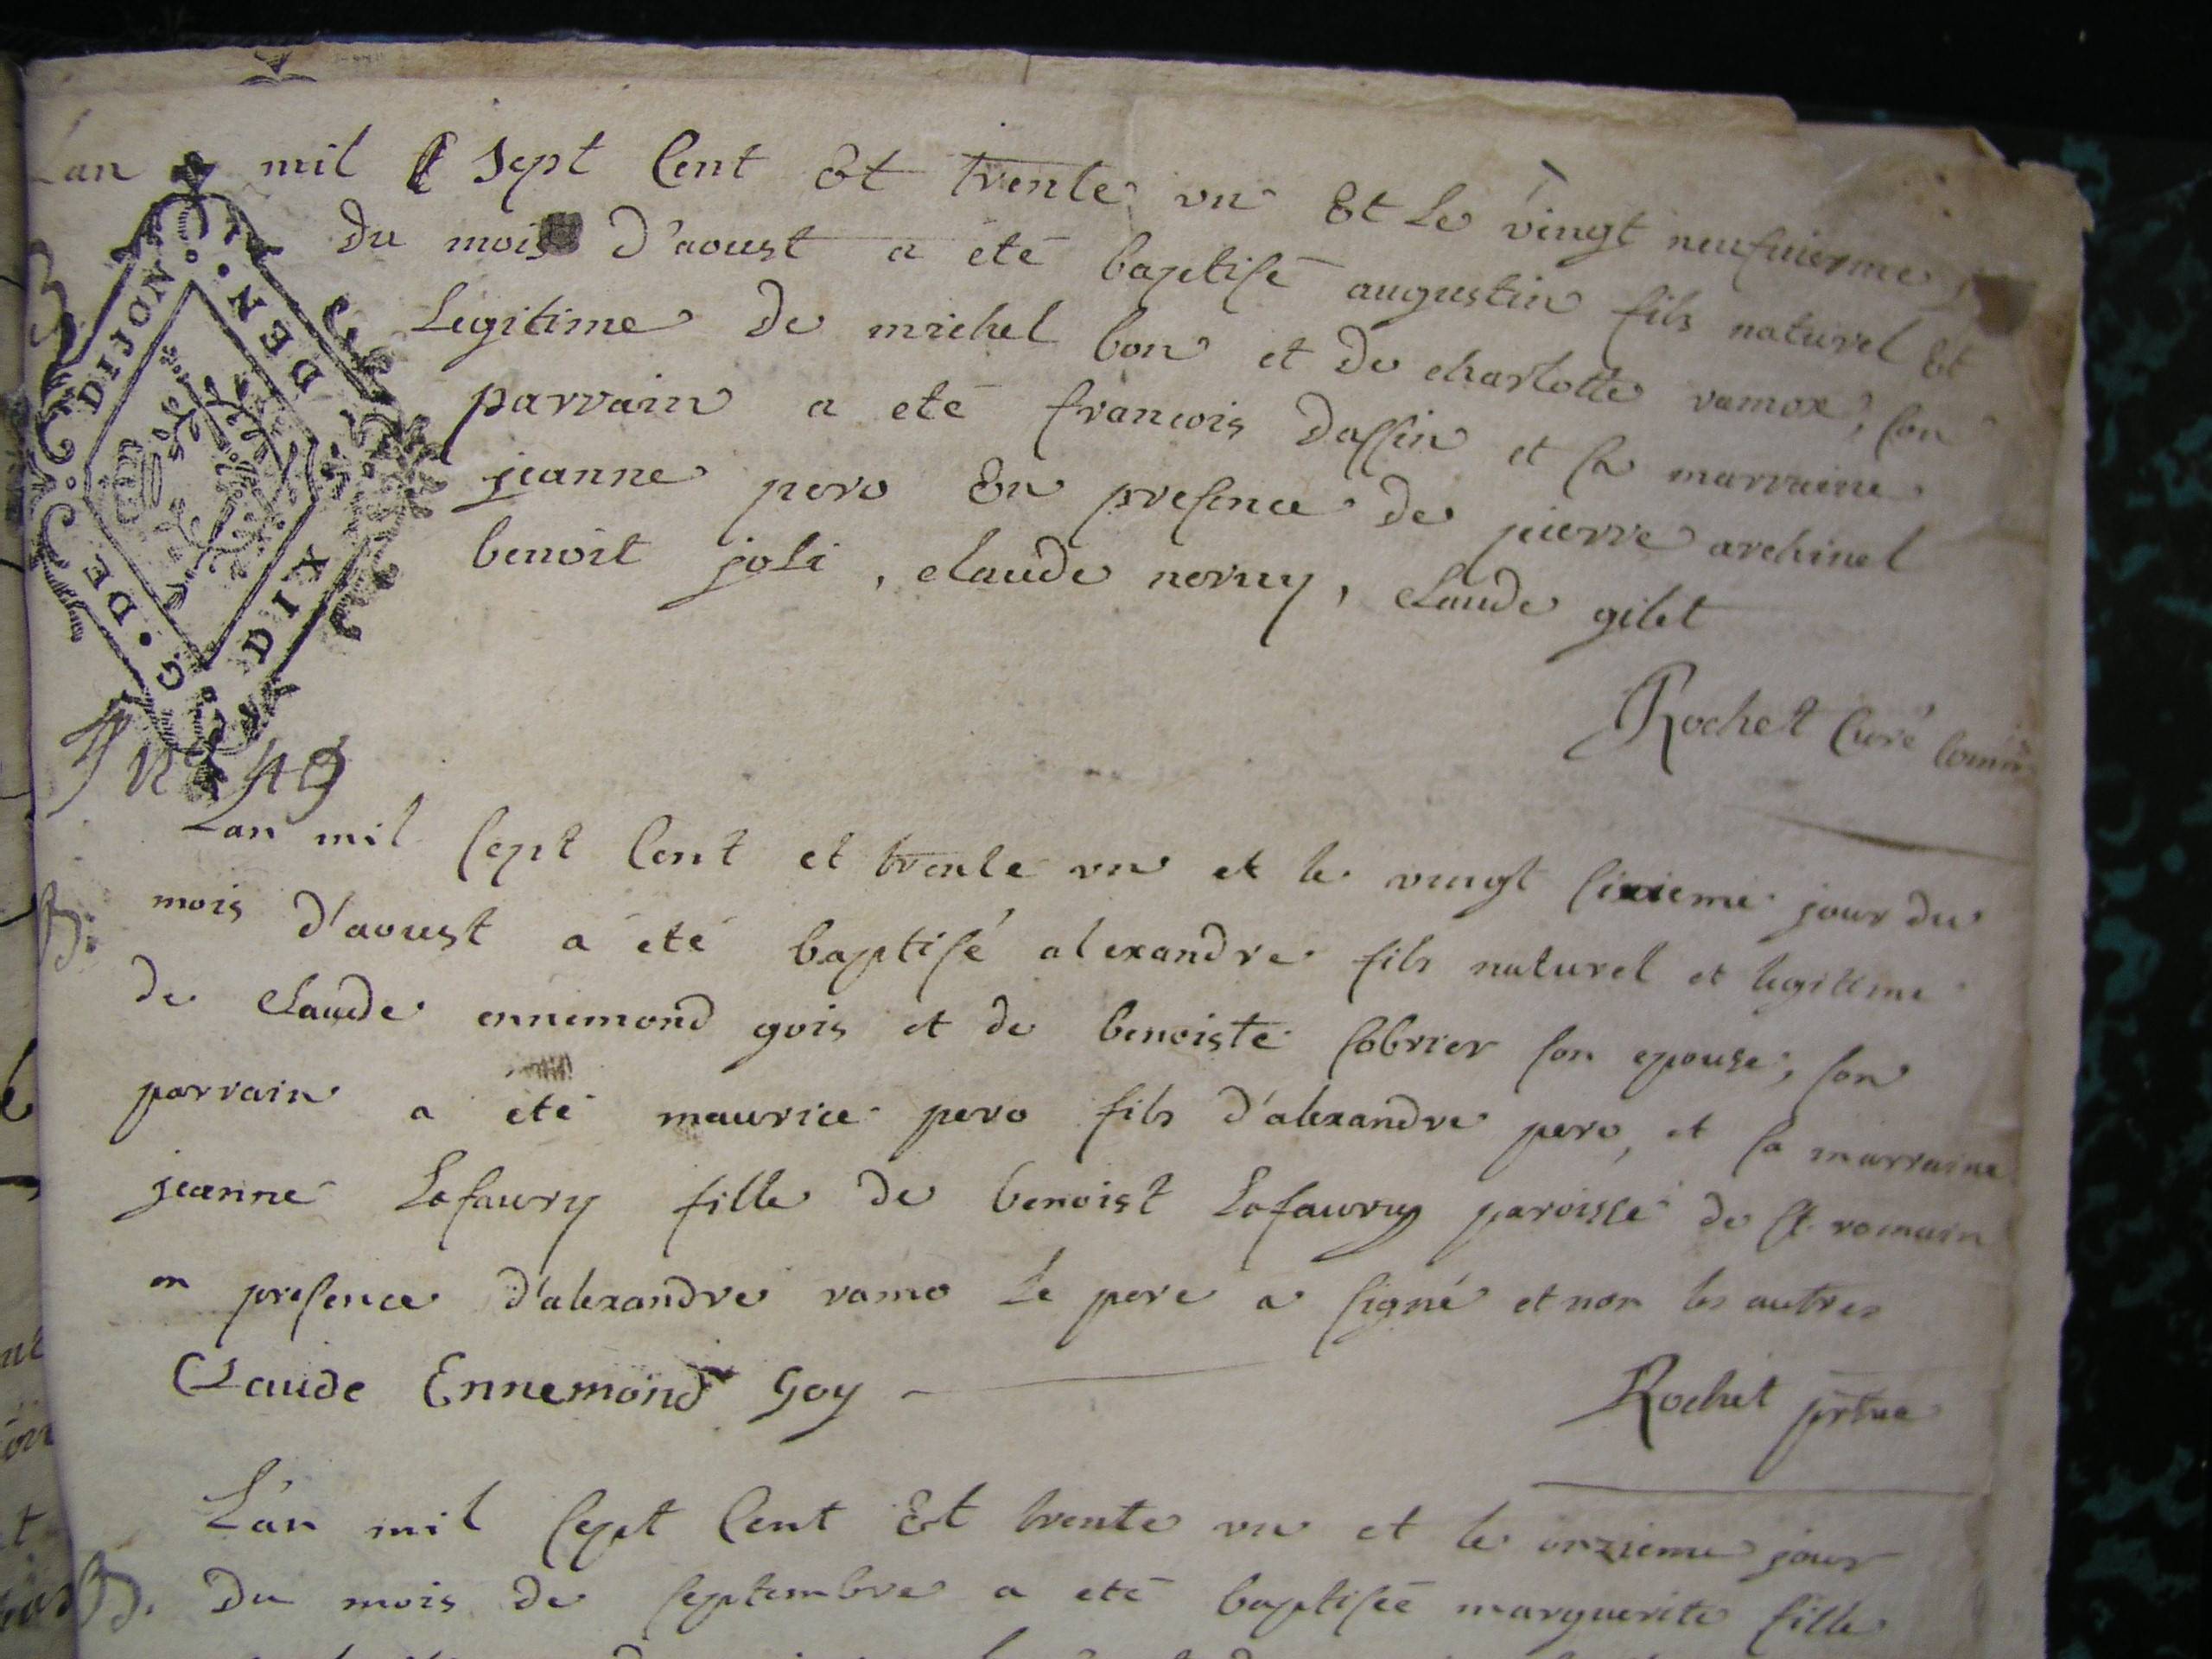 Lan mil Sept Cent Et trente un Et Le vingt neufuieme
du mois D'aoust a été baptisé augustin fils naturel Et
Legitime de michel bon et de charlotte ramox, son
parrain a eté francois dassin et sa marraine
jeanne pero En presence de pierre archinel
benoit joli, claude neruy, claude gilet
G. DE DIJON DEN DIX
Rochet Curé
Lan mil sept Cent et trente un et le vingt sixieme jour du
B. mois d'aoust a été baptisé alexandre fils naturel et legitime
de Claude ennemond gois et de benoiste sobrier son epouse, son
parrain a eté maurice pero fils d'alexandre pero, et sa marraine
jeanne Lafaury fille de benoist Lafaury paroisse de st romain
en presence d'alexandre ramo Le pere a signé et non les autres
Claude Ennemond Goy
Rochet prtre
L'an mil sept Cent Et trente un et le onzieme jour
B. Du mois de septembre a eté baptisée marguerite fille